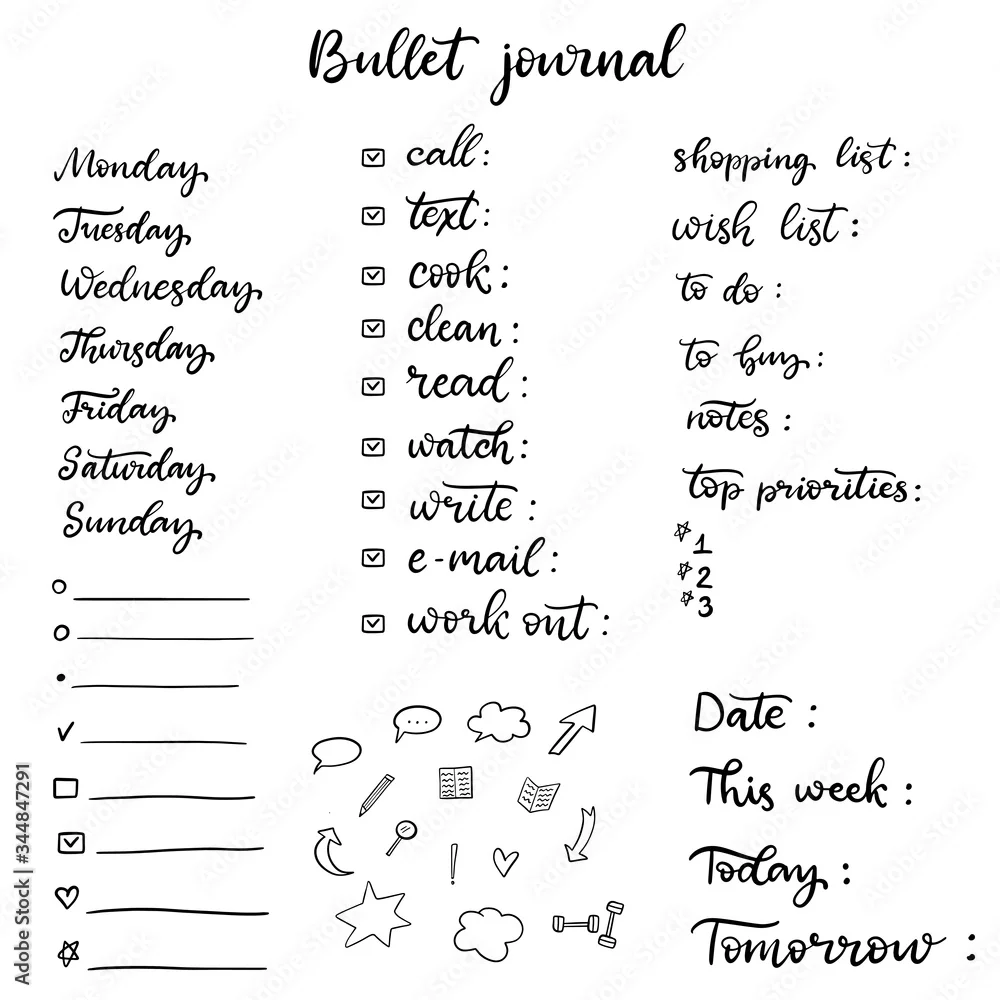 Bullet journal
Monday
Tuesday
Wednesday
Thursday
Friday
Saturday
Sunday
call:
text:
cook:
clean:
read:
watch:
write:
e-mail:
work out:
shopping list:
wish list:
to do:
to buy:
notes:
top priorities:
1
2
3
Date:
This week:
Today:
Tomorrow:
Adobe Stock | #344847291